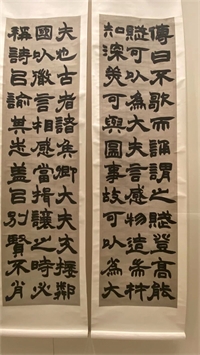 傳曰不歌而誦謂之賦登高能
賦可以為大夫言感物造耑材
知深美可與圖事故可以為大
夫也古者諸侯卿大夫交接鄰
國以微言相感當揖讓之時必
稱詩以諭其志蓋以別賢不肖